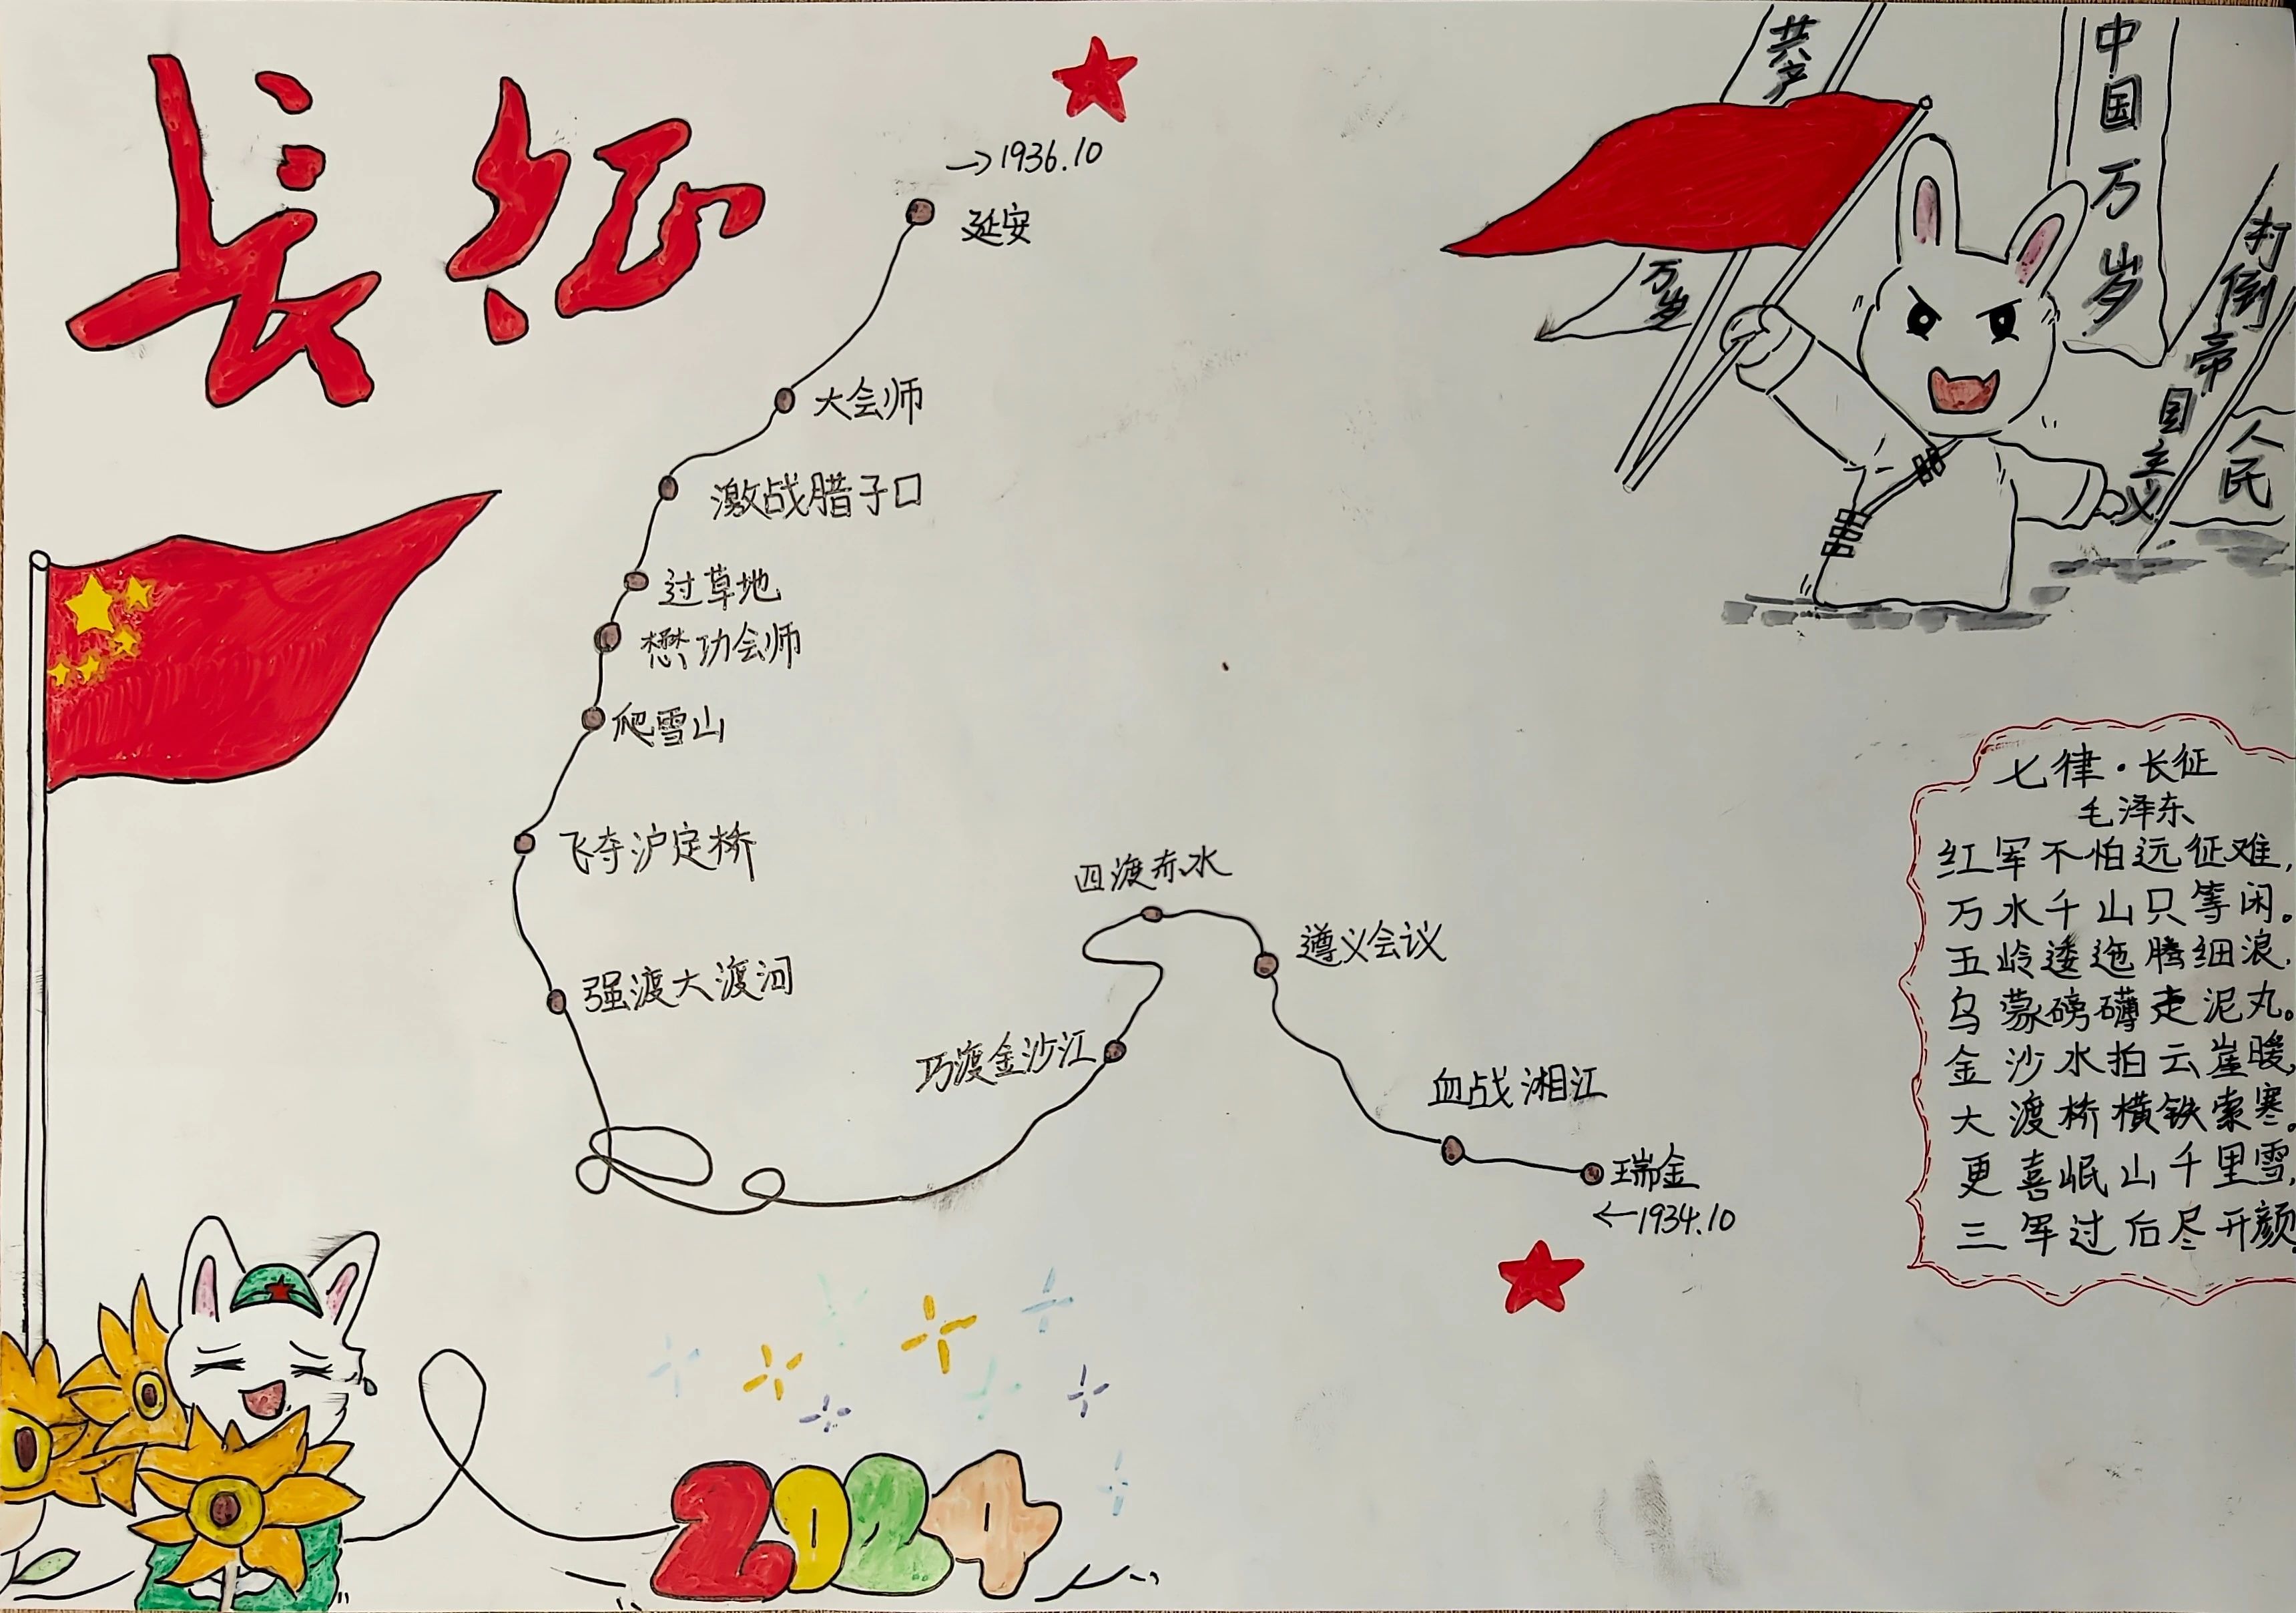 长征
→1936.10
延安
大会师
激战腊子口
过草地
懋功会师
爬雪山
飞夺沪定桥
强渡大渡河
巧渡金沙江
四渡赤水
遵义会议
血战湘江
瑞金
←1934.10
共产
万岁
中国万岁
打倒帝国主义
人民
七律·长征
毛泽东
红军不怕远征难,
万水千山只等闲。
五岭逶迤腾细浪,
乌蒙磅礴走泥丸。
金沙水拍云崖暖,
大渡桥横铁索寒。
更喜岷山千里雪,
三军过后尽开颜。
2024